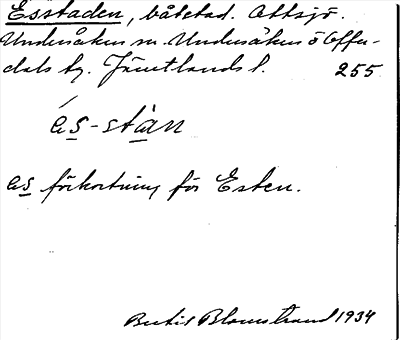 Esstaden, båtstad. Ottsjö.
Undersåkers sn. Undersåkers o Offer-
dals tg. Jämtlands l. 255
és-stàn
es förkortning för Esten.
Bertil Blomstrand 1934